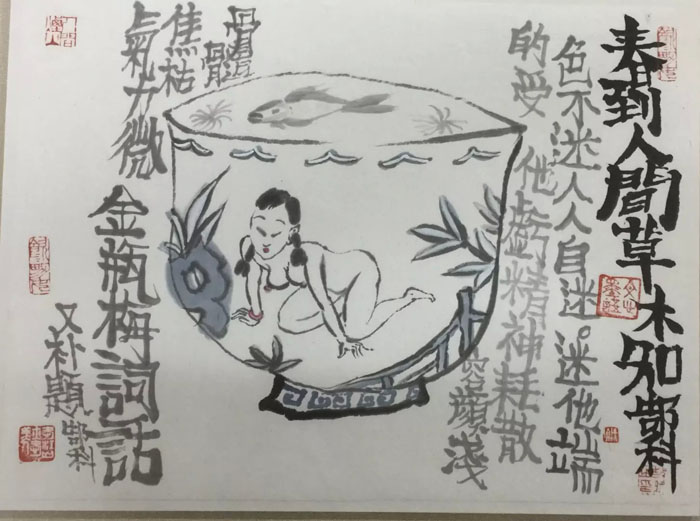 春到人間草木知 郜科
色不迷人人自迷。迷他端
的受他虧精神耗散
容顏淺
骨髓
焦枯
氣力微
金瓶梅詞話
又朴題 郜科